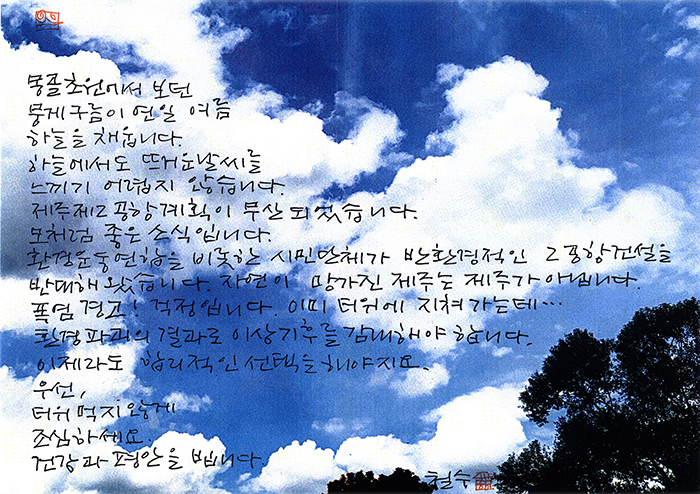 몽골초원에서 보던
뭉게구름이 연일 여름
하늘을 채웁니다.
하늘에서도 뜨거운날씨를
느끼기 어렵지 않습니다.
제주제2공항계획이 무산되었습니다.
모처럼 좋은 소식입니다.
환경운동연합을 비롯한 시민단체가 반환경적인 그공항건설을
반대해왔습니다. 자연이 망가진 제주는 제주가 아닙니다.
폭염 경고! 걱정입니다. 이미 더위에 지쳐가는데…
환경파괴의 결과로 이상기후를 감내해야 합니다.
이제라도 합리적인 선택을해야지요.
우선,
더위먹지않게
조심하세요.
건강과 평안을 빕니다.
철수